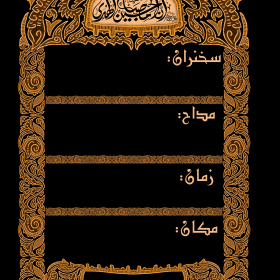 سخنران:
مداح:
زمان:
مکان: